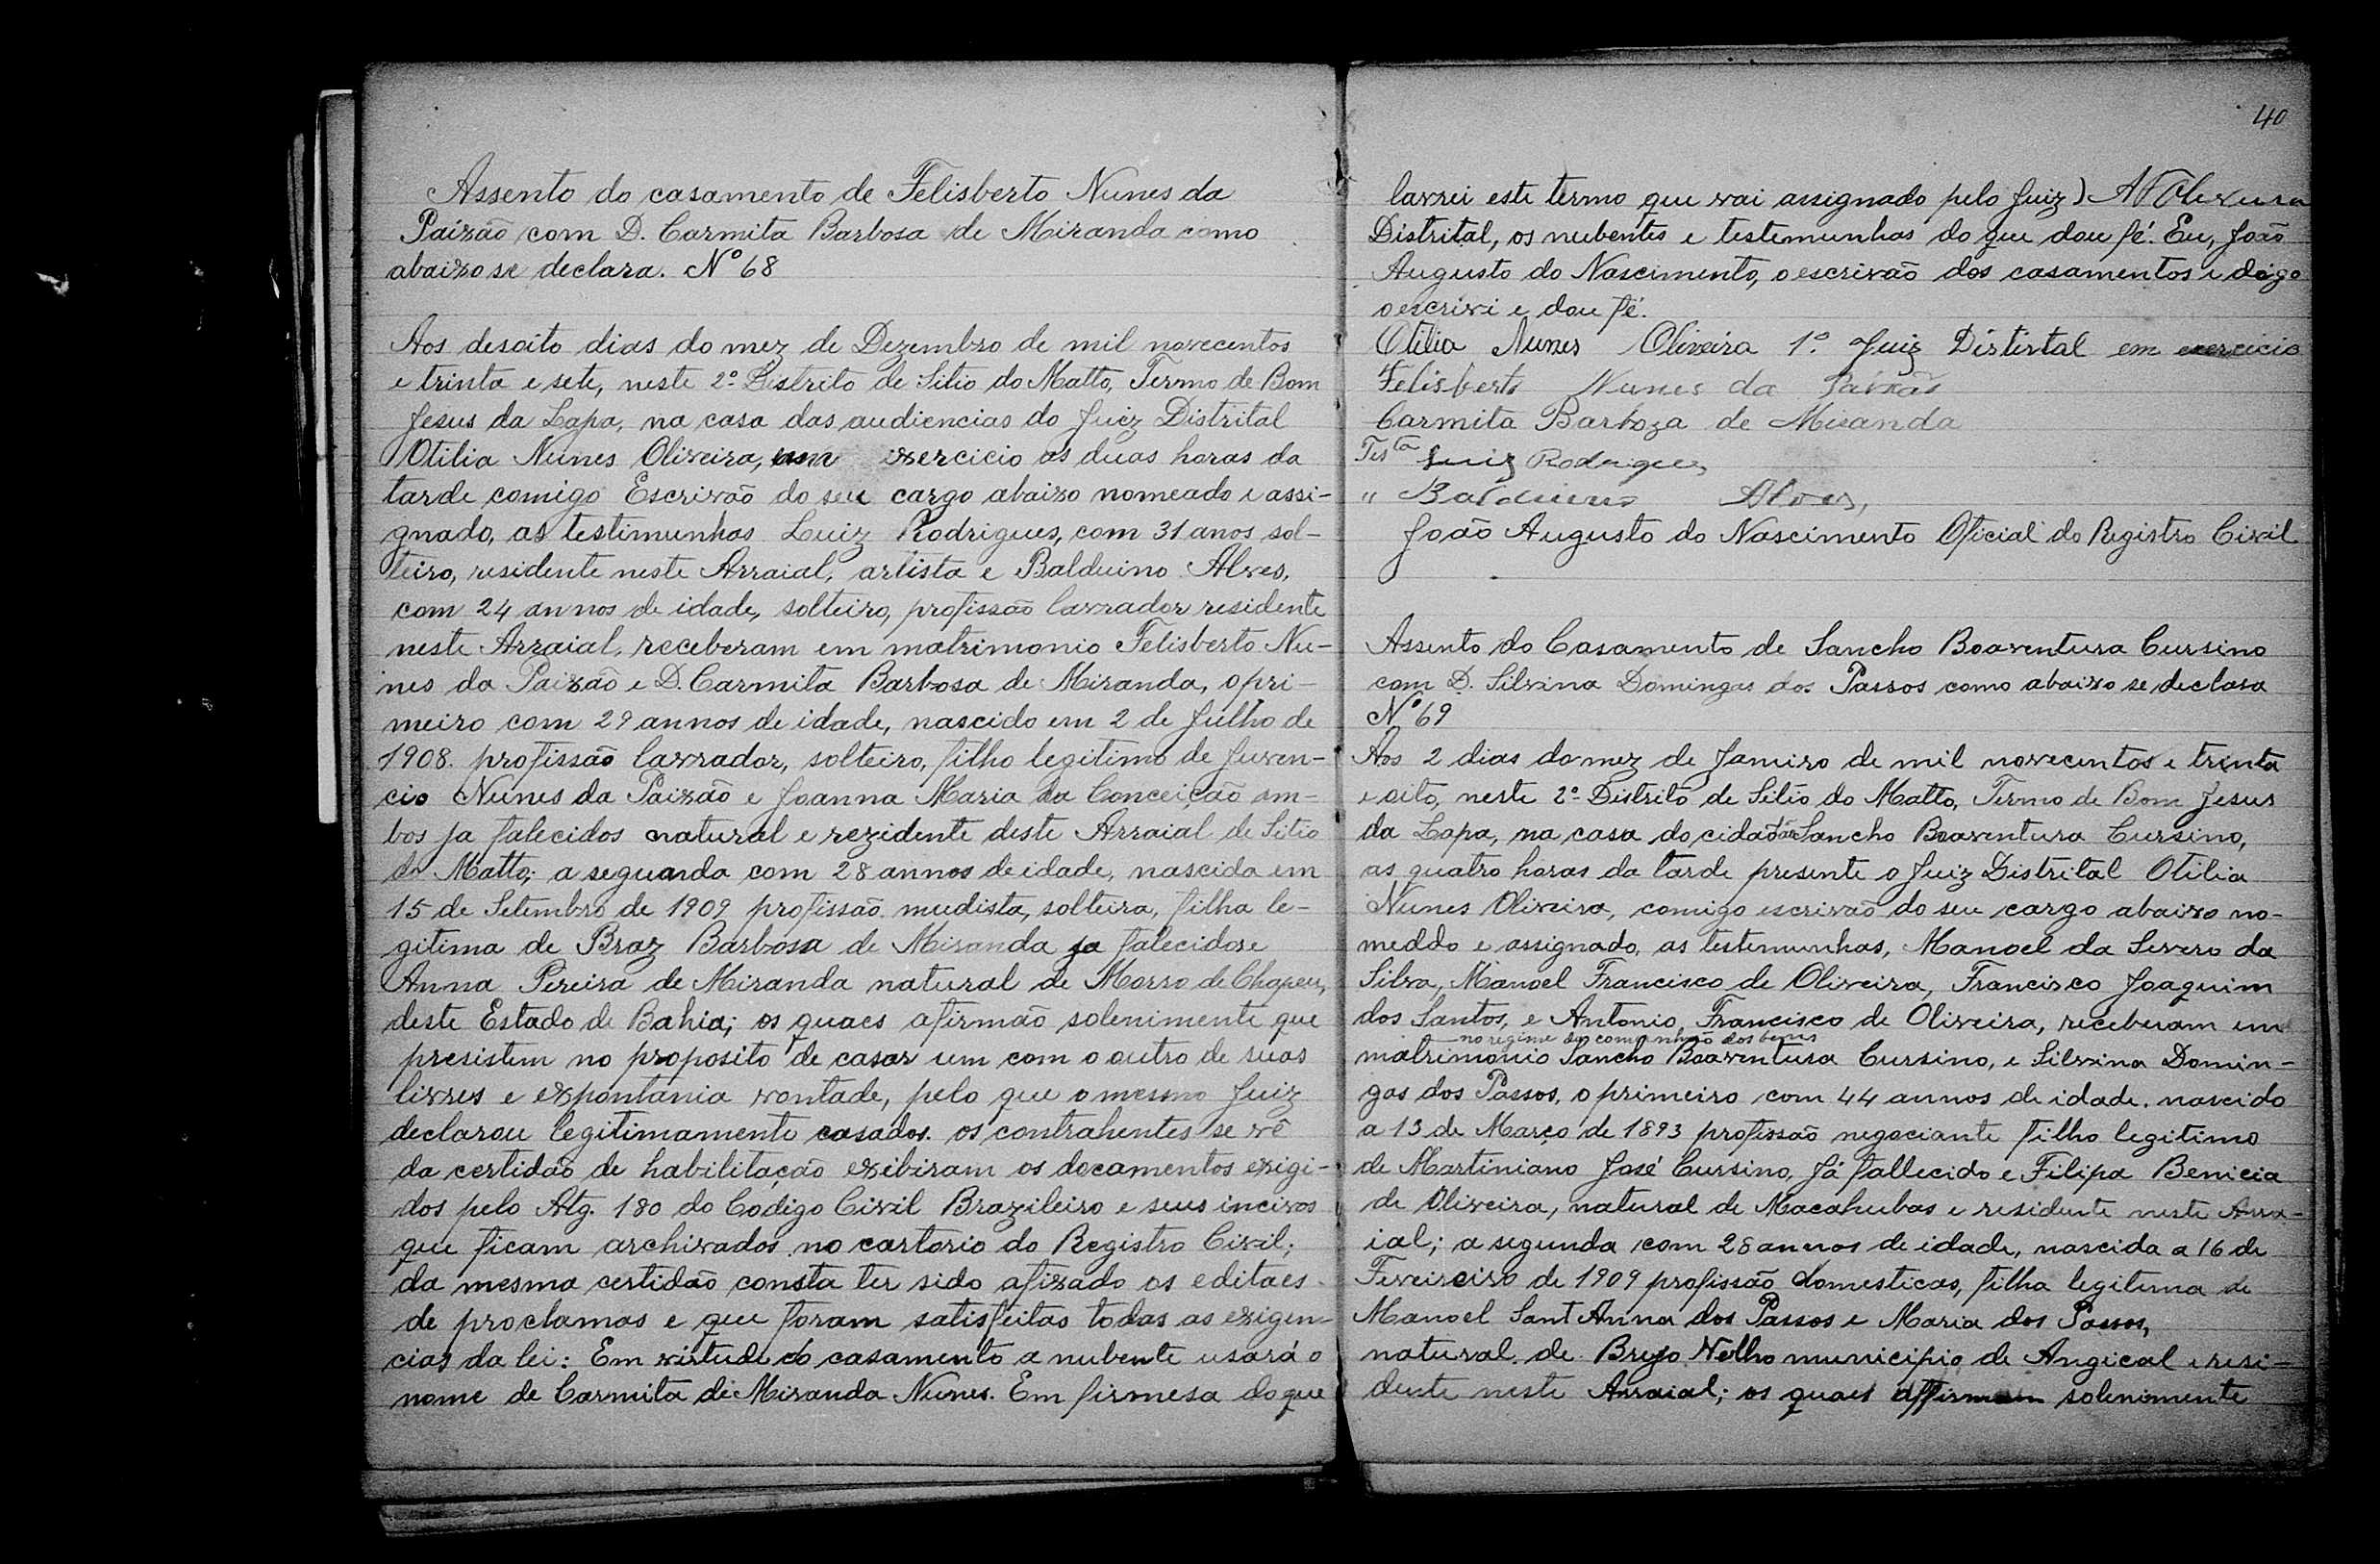 Assento do casamento de Felisberto Nunes da
Paixão com D. Carmita Barbosa de Miranda como
abaixo se declara. Nº 68
Aos desoito dias do mez de Dezembro de mil novecentos
e trinta e sete, neste 2º Distrito de Sitio do Matto, Termo de Bom
Jesus da Lapa, na casa das audiencias do Juiz Distrital
Otilia Nunes Oliveira, em exercicio as duas horas da
tarde comigo Escrivão do seu cargo abaixo nomeado e assi-
gnado, as testimunhas Luiz Rodrigues, com 31 anos sol-
teiro, residente neste Arraial, artista e Balduino Alves,
com 24 annos de idade, solteiro, profissão lavrador residente
neste Arraial, receberam em matrimonio Felisberto Nu-
nes da Paixão e D. Carmita Barbosa de Miranda, o pri-
meiro com 29 annos de idade, nascido em 2 de Julho de
1908. profissão lavrador, solteiro, filho legitimo de Juven-
cio Nunes da Paixão e Joanna Maria da Conceição am-
bos ja falecidos natural e rezidente deste Arraial de Sitio
do Matto; a seguanda com 28 annos de idade, nascida em
15 de Setembro de 1909 profissão mudista, solteira, filha le-
gitima de Braz Barbosa de Miranda ja falecidos e
Anna Pereira de Miranda natural de Morro de Chapeu,
deste Estado de Bahia; os quaes afirmão solenimente que
presistem no proposito de casar um com o outro de suas
livres e expontania vontade, pelo que o mesmo Juiz
declarou legitimamente casados. os contrahentes se vê
da certidão de habilitação exibiram os documentos exigi-
dos pelo Atg. 180 do Codigo Civil Brazileiro e seus incivos
que ficam archivados no cartorio do Registro Civil;
da mesma certidão consta ter sido afixado os editaes
de proclamas e que foram satisfeitas todas as exigen-
cias da lei: Em virtude do casamento a nubente usará o
nome de Carmita de Miranda Nunes. Em firmesa do que
40
lavrei este termo que vai assignado pelo Juiz)
Distrital, os nubentes e testemunhas do que dou fé. Eu, João
Augusto do Nascimento, o escrivão dos casamentos e digo
o escrivi e dou fé.
Otilia Nunes Oliveira 1º Juiz Distirtal em exercicio
Felisberto Nunes da Paixão
Carmita Barboza de Miranda
Testa Luiz Rodrigues
" Balduino Alves,
João Augusto do Nascimento Oficial do Registro Civil
Assento do Casamento de Sancho Boaventura Cursino
com D. Silvina Domingas dos Passos como abaixo se declara
Nº 69
Aos 2 dias do mez de Janiiro de mil novecentos e trinta
e oito, neste 2º Distrito de Sitio do Matto, Termo de Bom Jesus
da Lapa, na casa do cidadão Sancho Boaventura Cursino,
as quatro horas da tarde presente o Juiz Distrital Otilia
Nunes Oliveira, comigo escrivão do seu cargo abaixo no-
meddo e assignado, as testemunhas, Manoel da Severo da
Silva, Manoel Francisco de Oliveira, Francisco Joaquim
dos Santos, e Antonio Francisco de Oliveira, receberam em
no regime da companhão dos bens
matrimonio Sancho Boaventura Cursino, e Silvina Domin-
gas dos Passos, o primeiro com 44 annos de idade. nascido
a 13 de Março de 1893 profissão negociante filho legitimo
de Martiniano José Cursino, Já fallecido e Filipa Benicia
de Oliveira, natural de Macahubas e residente neste Arra-
ial; a segunda com 28 annos de idade, nascida a 16 de
Feveireiro de 1909 profissão domesticas, filha legitima de
Manoel Sant Anna dos Passos e Maria dos Passos,
natural de Brejo Velho municipio de Angical e resi-
dente neste Arraial; os quaes affirmam solenimente